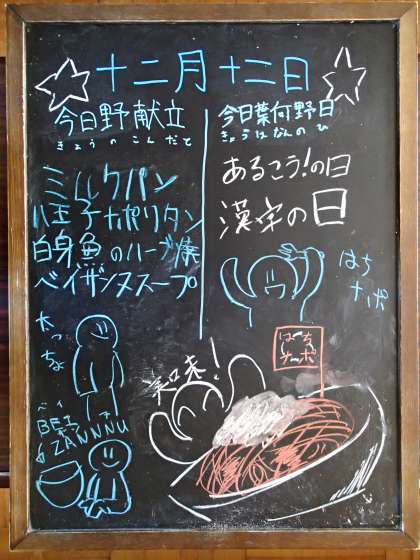 十二月十二日
今日野献立
きょうのこんだて
ミルクパン
八王子ナポリタン
白身魚のハーブ焼
ベイザンヌスープ
今日葉何野日
きょうはなんのひ
あるこう!の日
漢字の日
はち
ナポ
太っちょ
はち
ナポ
ベイ
BEI
ZANNNU